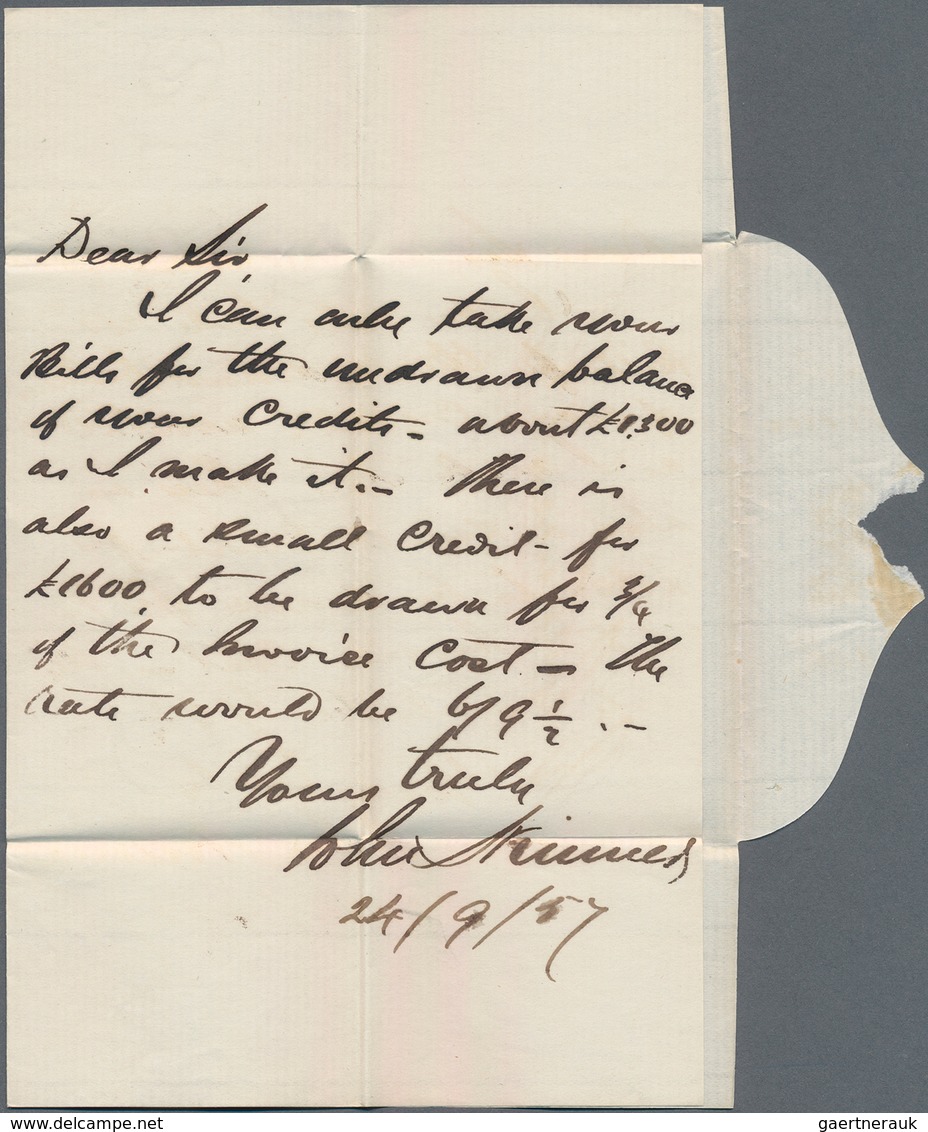 Dear Sir
I can only take your
Bills for the undrawn balance
of your Credits - about £1300
as I make it. - There is
also a small Credit - for
£1600 to be drawn for 3/4
of the Invoice Cost - The
rate would be 6/9 1/2 . -
Yours truly
John Skinner
24/9/57
delcampe.net
gaertnerauk